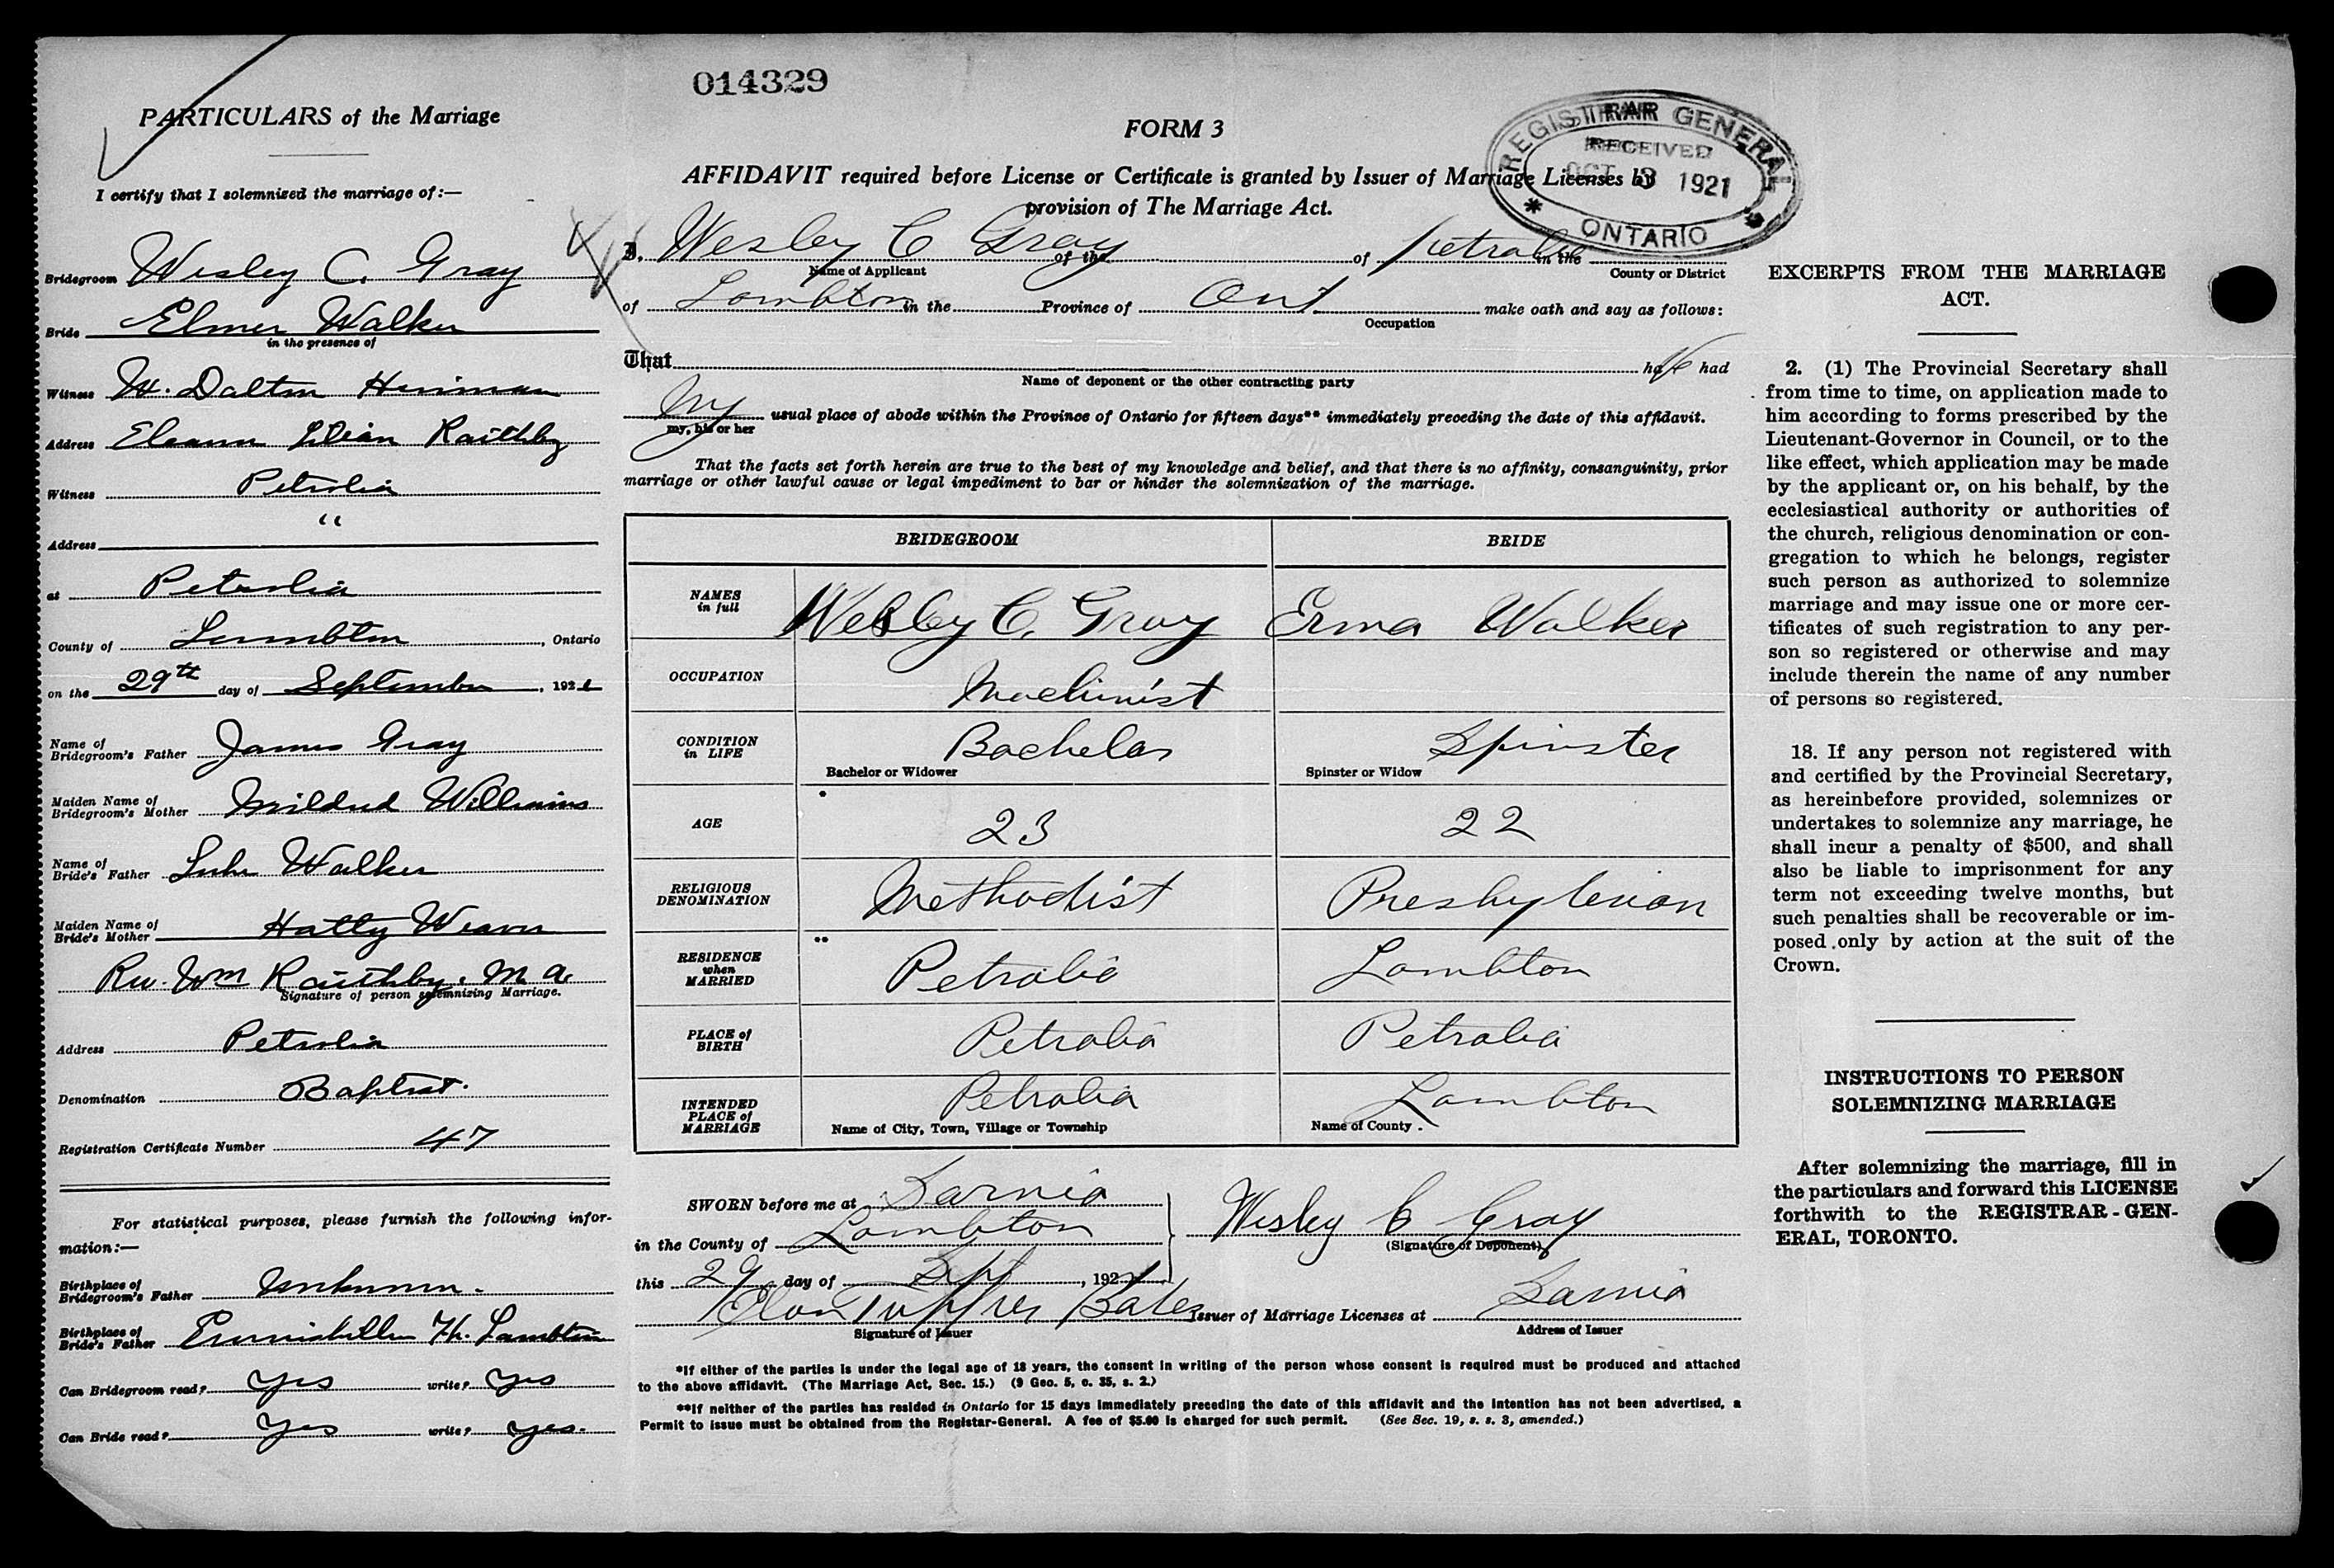 PARTICULARS of the Marriage
I certify that I solemnized the marriage of:—
Bridegroom Wesley C. Gray
Bride Elmer Walker
in the presence of
Witness W. Dalton
Address Lilian Raithby
Witness Petrolia
"
Address
at Petrolia
County of Lambton, Ontario
on the 29th day of September, 1921
Name of
Bridegroom's Father James Gray
Maiden Name of
Bridegroom's Mother Mildred Williams
Name of
Bride's Father Luke Walker
Maiden Name of
Bride's Mother Hatty Weaver
Rev. Wm Raithby. M. A.
Signature of person solemnizing Marriage.
Address Petrolia
Denomination Baptist.
Registration Certificate Number 47
For statistical purposes, please furnish the following infor-
mation:—
Birthplace of
Bridegroom's Father Unknown.
Birthplace of
Bride's Father Lambton
Can Bridegroom read? Yes write? Yes
Can Bride read? Yes write? Yes.
014329
FORM 3
AFFIDAVIT required before License or Certificate is granted by Issuer of Marriage Licenses by
provision of The Marriage Act.
REGISTRAR GENERAL
RECEIVED
OCT 3 1921
ONTARIO
I, Wesley C Gray of the of Petrolia in the
Name of Applicant County or District
of Lambton in the Province of Ont make oath and say as follows:
Occupation
That have had
Name of deponent or the other contracting party
my usual place of abode within the Province of Ontario for fifteen days** immediately preceding the date of this affidavit.
my, his or her
That the facts set forth herein are true to the best of my knowledge and belief, and that there is no affinity, consanguinity, prior
marriage or other lawful cause or legal impediment to bar or hinder the solemnization of the marriage.
BRIDEGROOM BRIDE
NAMES
in full Wesley C. Gray Erma Walker
OCCUPATION Machinist
CONDITION
in LIFE Bachelor Spinster
Bachelor or Widower Spinster or Widow
* AGE 23 22
RELIGIOUS
DENOMINATION Methodist Presbyterian
** RESIDENCE
when
MARRIED Petrolia Lambton
PLACE of
BIRTH Petrolia Petrolia
INTENDED
PLACE of
MARRIAGE Petrolia Lambton
Name of City, Town, Village or Township Name of County.
SWORN before me at Sarnia
in the County of Lambton Wesley C Gray
(Signature of Deponent)
this 29 day of Sept, 1921
Bates Issuer of Marriage Licenses at Sarnia
Signature of Issuer Address of Issuer
*If either of the parties is under the legal age of 18 years, the consent in writing of the person whose consent is required must be produced and attached
to the above affidavit. (The Marriage Act, Sec. 15.) (9 Geo. 5, c. 35, s. 2.)
**If neither of the parties has resided in Ontario for 15 days immediately preceding the date of this affidavit and the intention has not been advertised, a
Permit to issue must be obtained from the Registar-General. A fee of $5.00 is charged for such permit. (See Sec. 19, s. s. 3, amended.)
EXCERPTS FROM THE MARRIAGE
ACT.
2. (1) The Provincial Secretary shall
from time to time, on application made to
him according to forms prescribed by the
Lieutenant-Governor in Council, or to the
like effect, which application may be made
by the applicant or, on his behalf, by the
ecclesiastical authority or authorities of
the church, religious denomination or con-
gregation to which he belongs, register
such person as authorized to solemnize
marriage and may issue one or more cer-
tificates of such registration to any per-
son so registered or otherwise and may
include therein the name of any number
of persons so registered.
18. If any person not registered with
and certified by the Provincial Secretary,
as hereinbefore provided, solemnizes or
undertakes to solemnize any marriage, he
shall incur a penalty of $500, and shall
also be liable to imprisonment for any
term not exceeding twelve months, but
such penalties shall be recoverable or im-
posed only by action at the suit of the
Crown.
INSTRUCTIONS TO PERSON
SOLEMNIZING MARRIAGE
After solemnizing the marriage, fill in
the particulars and forward this LICENSE
forthwith to the REGISTRAR-GEN-
ERAL, TORONTO.